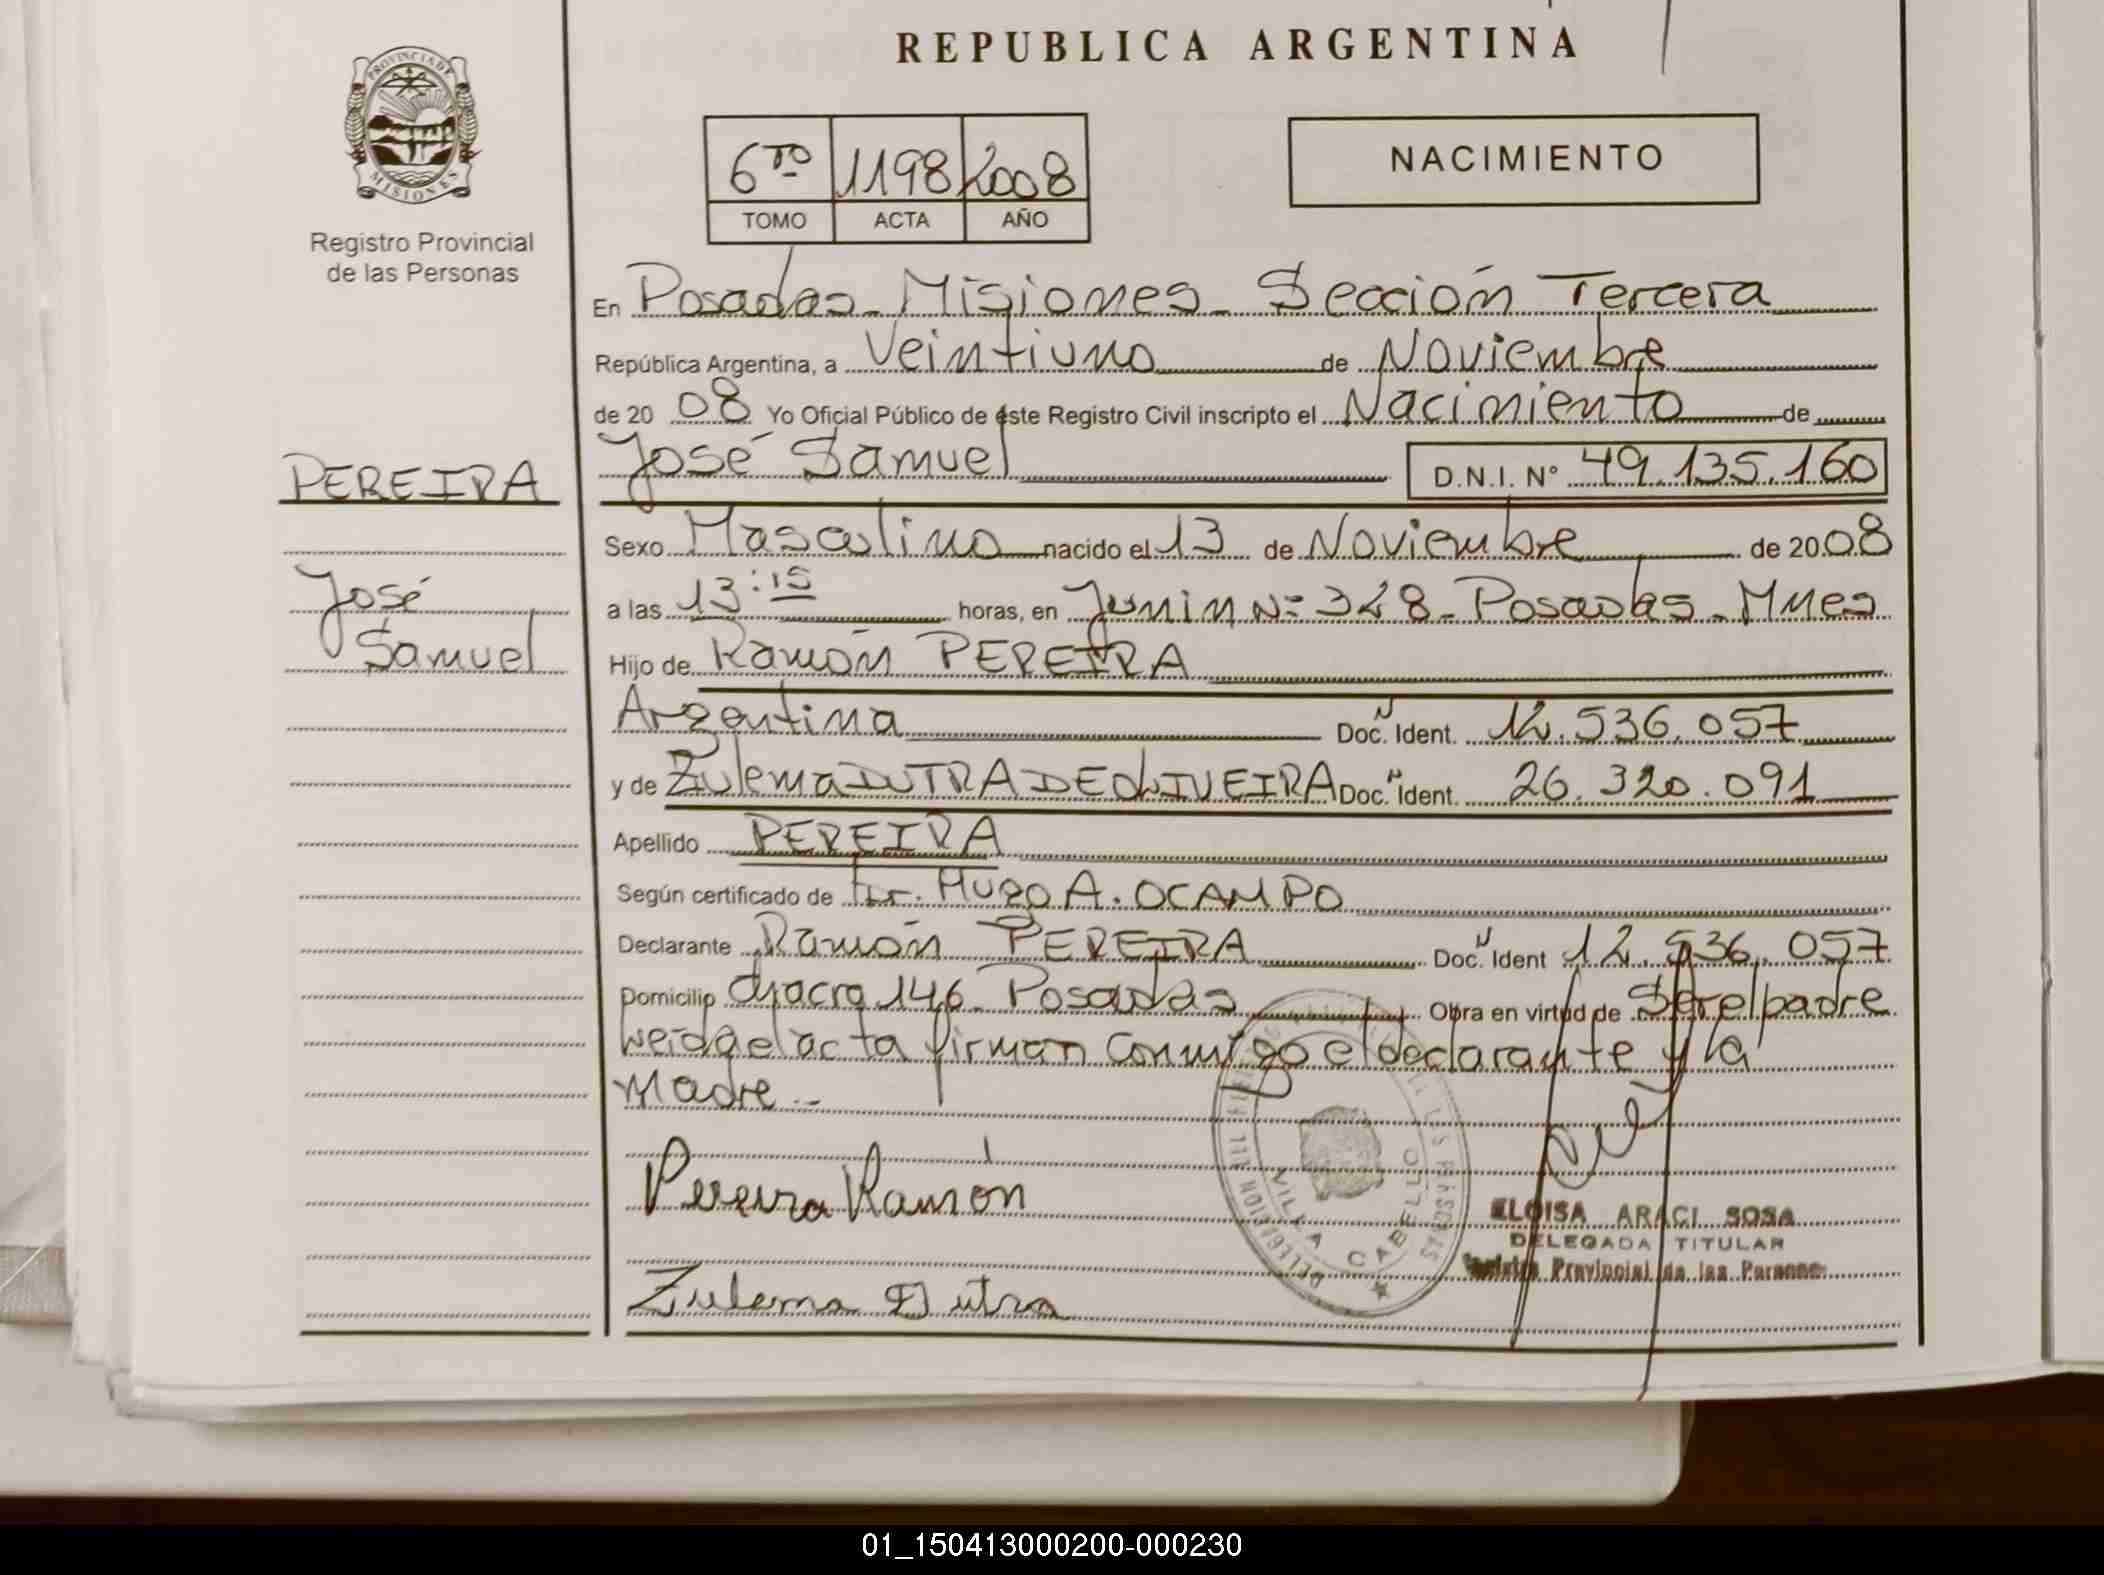 REPUBLICA ARGENTINA
PROVINCIA DE MISIONES
Registro Provincial
de las Personas
6TO 1198 2008
TOMO ACTA AÑO
NACIMIENTO
En Posadas - Misiones - Sección Tercera
República Argentina, a Veintiuno de Noviembre
de 2008 Yo Oficial Público de éste Registro Civil inscripto el Nacimiento de
José Samuel D.N.I. Nº 49.135.160
PEREIRA
Sexo Masculino nacido el 13 de Noviembre de 2008
José
Samuel
a las 13:15 horas, en Junin Nº 328 - Posadas - Mnes
Hijo de Ramón PEREIRA
Argentina Doc. Ident. 12.536.057
y de Zulema DUTRA DE OLIVEIRA Doc. Ident. 26.320.091
Apellido PEREIRA
Según certificado de Dr. Hugo A. OCAMPO
Declarante Ramón PEREIRA Doc. Ident 12.536.057
Domicilio Chacra 146 - Posadas Obra en virtud de Ser el padre
Leida el acta firman conmigo el declarante y la
Madre -
Pereira Ramón
Zulema Dutra
DELEGACION DEL REGISTRO DE LAS PERSONAS
VILLA CABELLO
ELOISA ARACI SOSA
DELEGADA TITULAR
Registro Provincial de las Personas
01_150413000200-000230